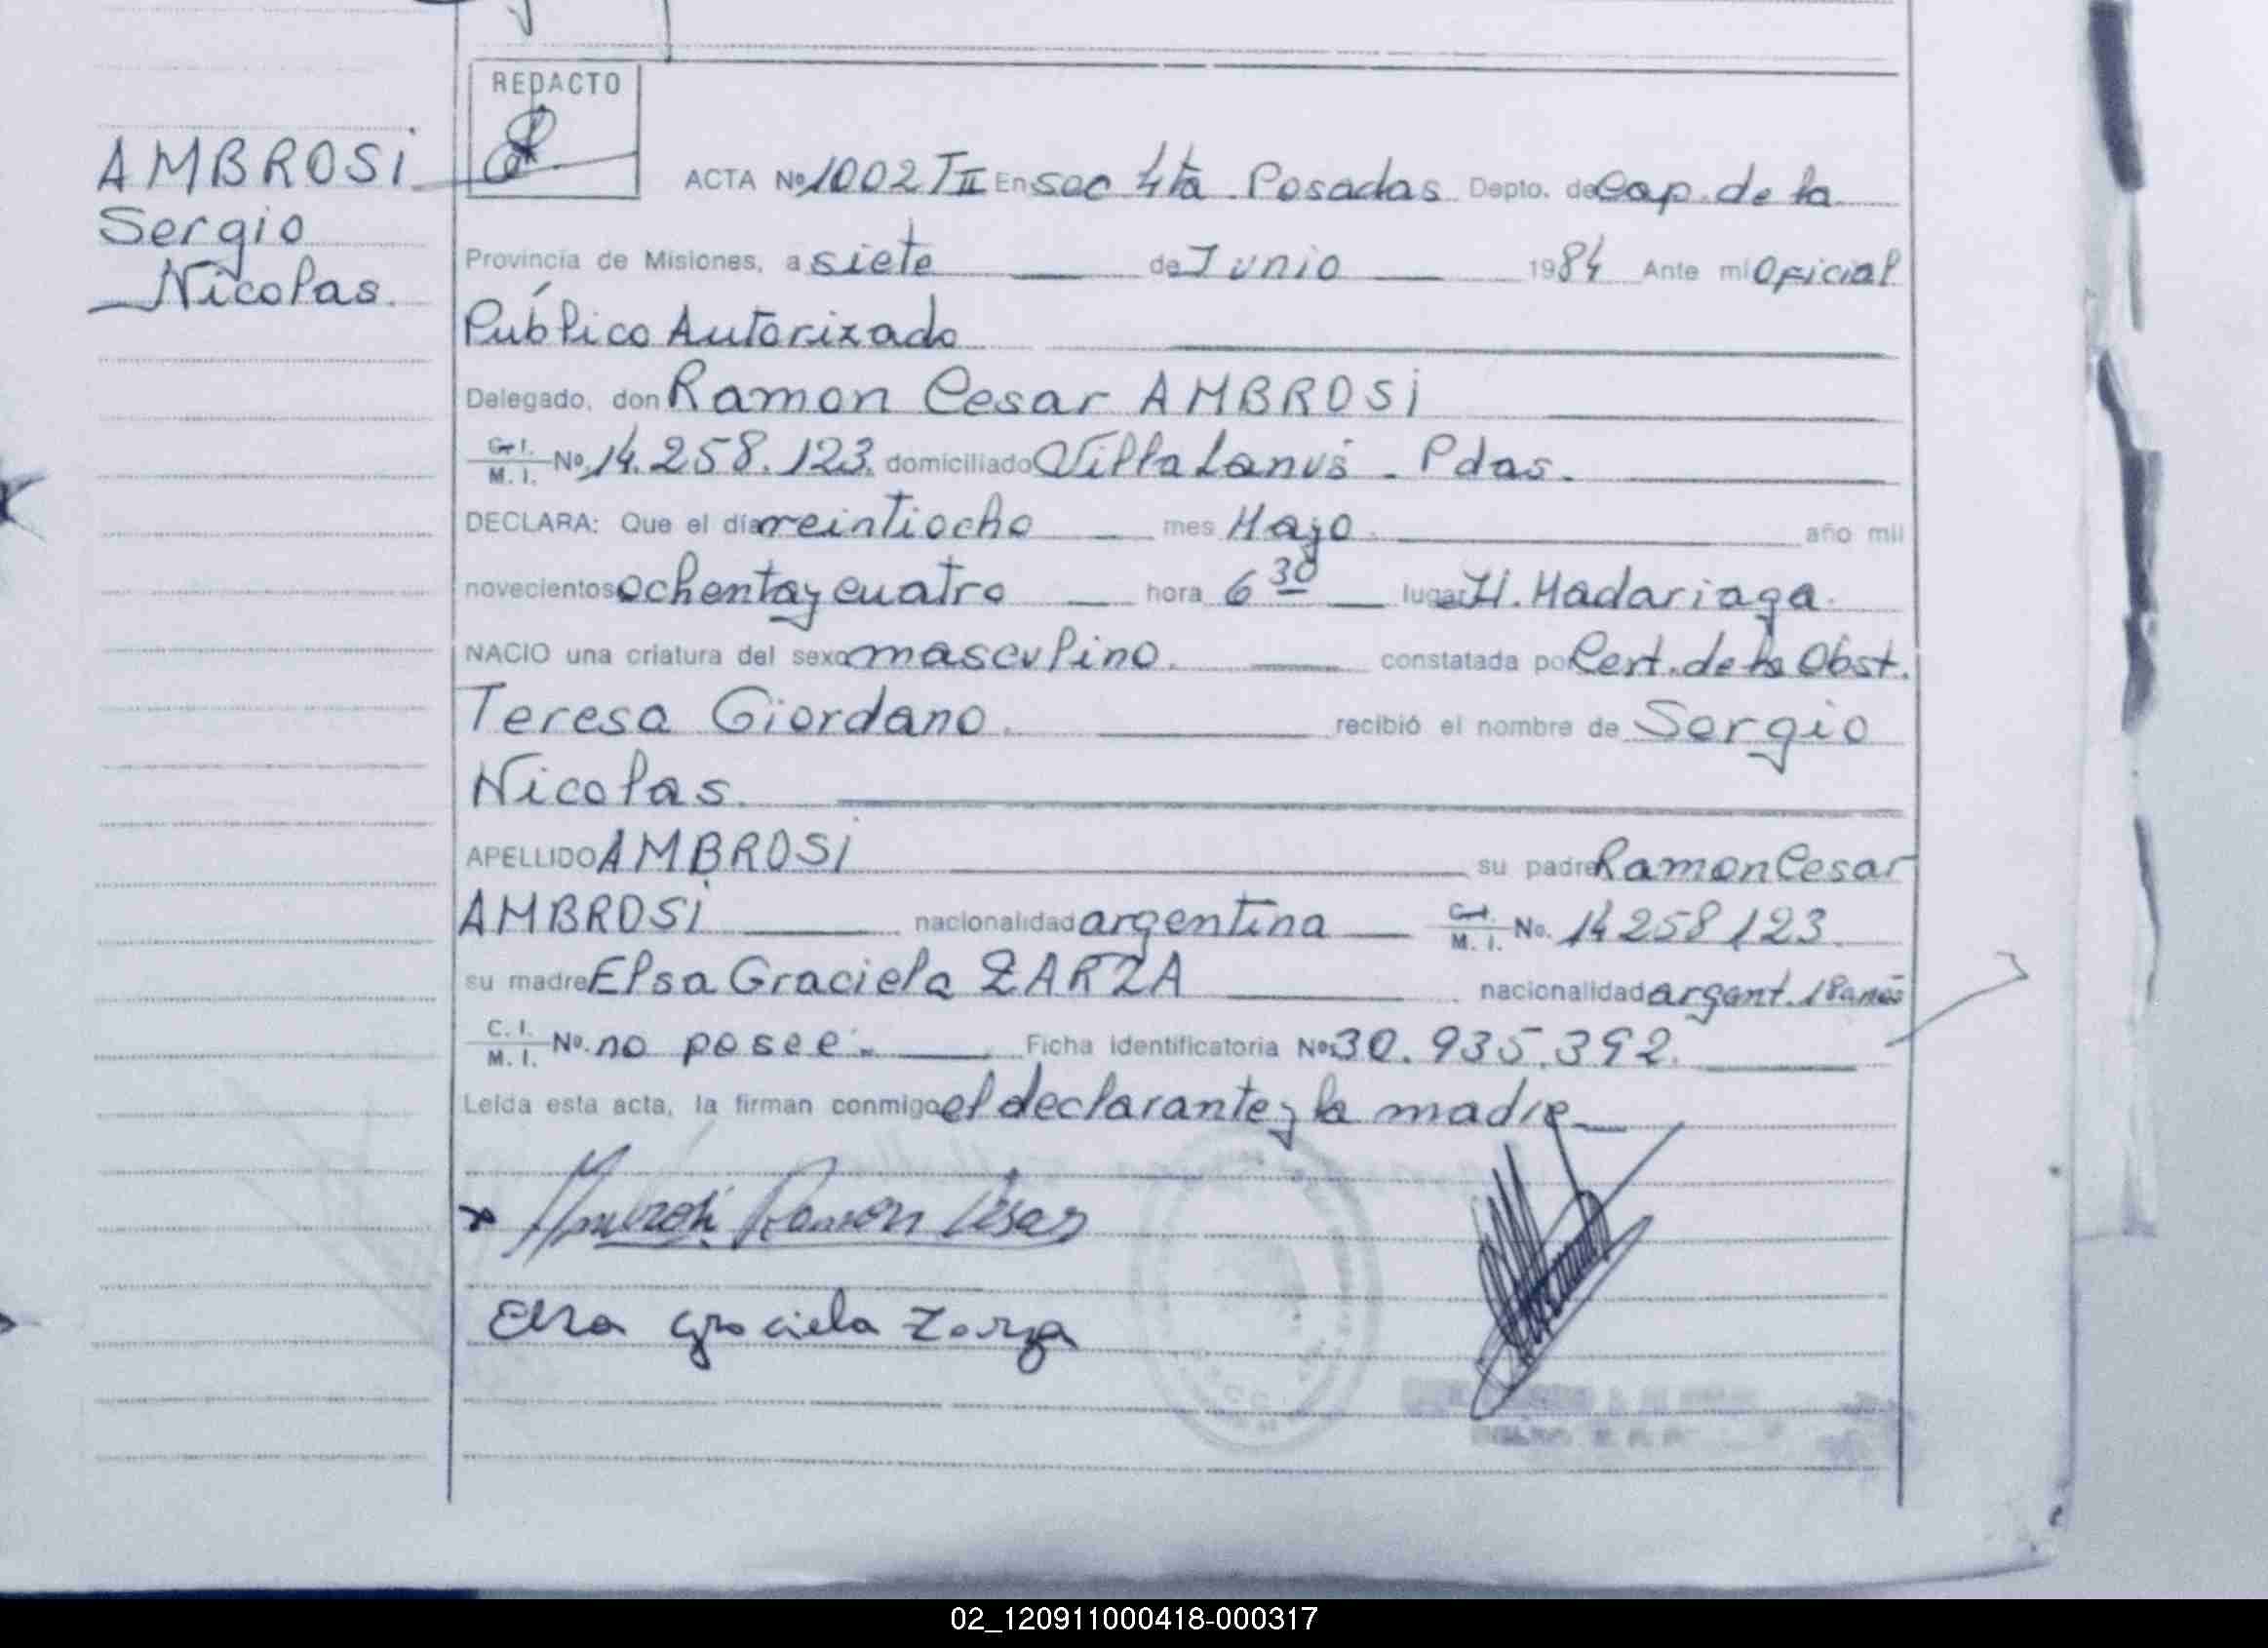 REDACTO
AMBROSI
Sergio
Nicolas.
ACTA Nº 1002 TII En sec 4ta. Posadas Depto. de Cap. de la
Provincia de Misiones, a siete de Junio 1984 Ante mi Oficial
Público Autorizado
Delegado, don Ramon Cesar AMBROSI
C. I. M. I. Nº 14.258.123. domiciliado Villa Lanús - Pdas.
DECLARA: Que el día veintiocho mes Mayo. año mil
novecientos ochenta y cuatro hora 6 30 lugar H. Madariaga.
NACIO una criatura del sexo masculino. constatada por Cert. de la Obst.
Teresa Giordano. recibió el nombre de Sergio
Nicolas.
APELLIDO AMBROSI su padre Ramon Cesar
AMBROSI nacionalidad argentina C. I. M. I. No. 14258123.
su madre Elsa Graciela ZARZA nacionalidad argent. 18 años
C. I. M. I. Nº. no posee.- Ficha identificatoria Nº 30.935.392.
Leída esta acta, la firman conmigo el declarante y la madre
Ambrosi Ramon Cesar
Elsa graciela Zarza
02_120911000418-000317